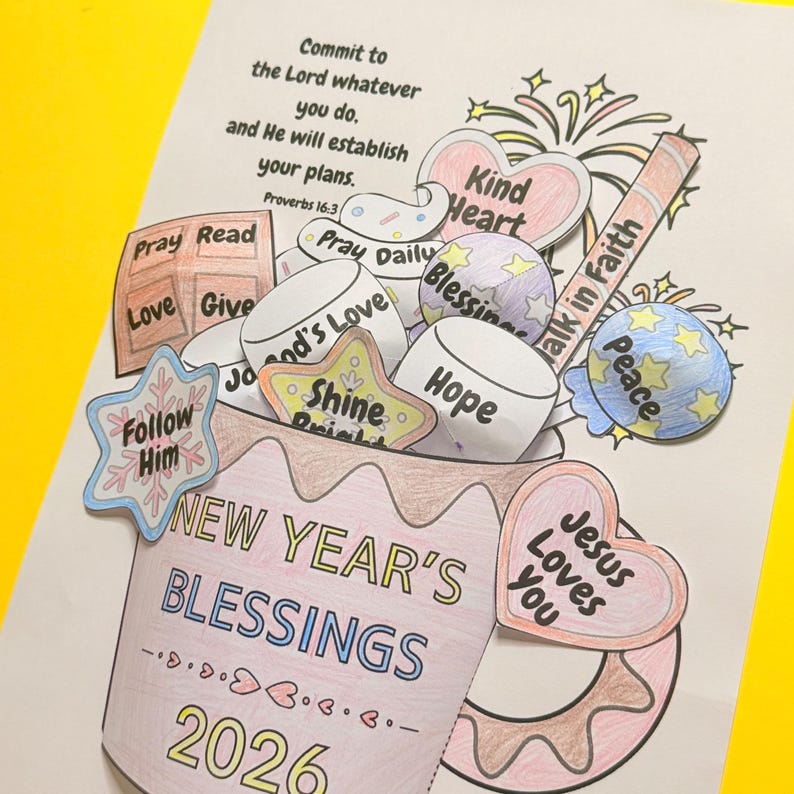 Commit to
the Lord whatever
you do,
and He will establish
your plans.
Proverbs 16:3
Kind
Heart
Pray Daily
Pray Read
Love Give
Blessings
Walk in Faith
God's Love
Jo
Peace
Hope
Shine
Bright
Follow
Him
Jesus
Loves
You
NEW YEAR'S
BLESSINGS
2026